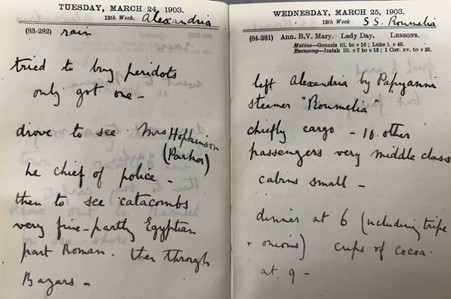 TUESDAY, MARCH 24, 1903.
12th Week. Alexandria
(83-282) rain
tried to buy peridots
only got one -
drove to see Mrs Hopkinson
(Parker)
he chief of police -
then to see catacombs
very fine - partly Egyptian
part Roman. then through
Bazars -
WEDNESDAY, MARCH 25, 1903.
12th Week S.S. Roumelia
(84-281) Ann. B.V. Mary. Lady Day. LESSONS.
Matins—Genesis iii. to v 16; Luke i. v 46.
Evensong—Isaiah lii. v 7 to v 13; 1 Cor. xv. to v 35.
left Alexandria by Papayanni
steamer "Roumelia"
chiefly cargo - 16 other
passengers very middle class
cabins small -
dinner at 6 (including tripe
+ onions) cups of cocoa
at 9 -